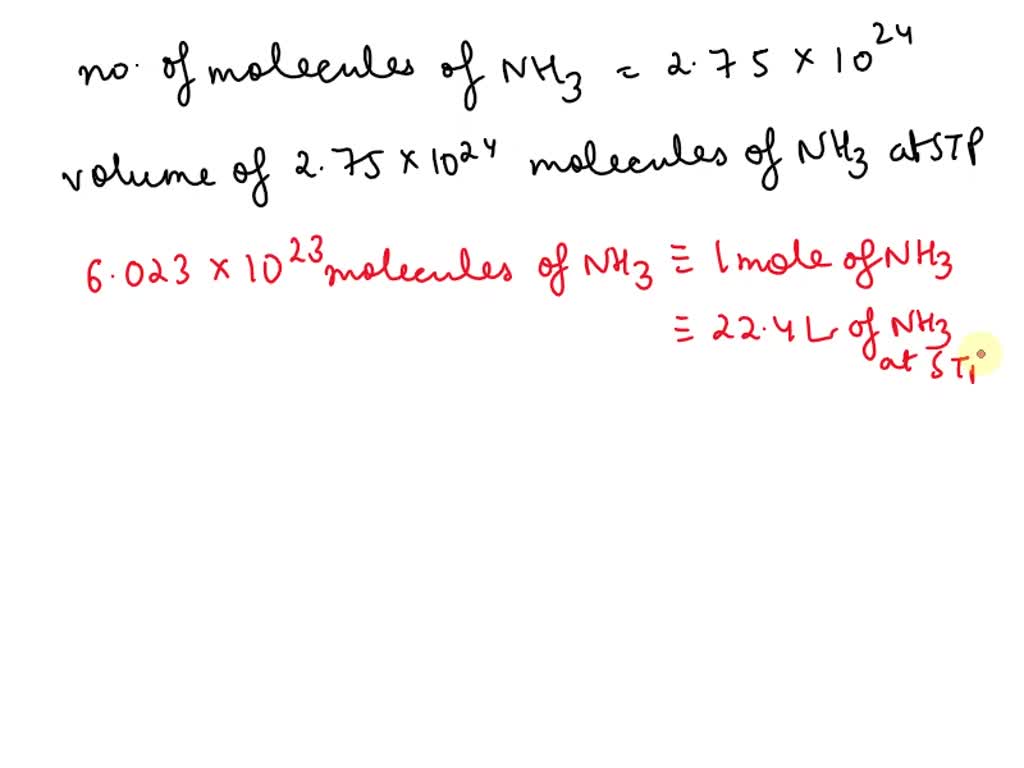 no. of molecules of NH3 = 2.75 × 10^24
volume of 2.75 × 10^24 molecules of NH3 at STP
6.023 × 10^23 molecules of NH3 ≡ 1 mole of NH3
≡ 22.4 L of NH3
at ST